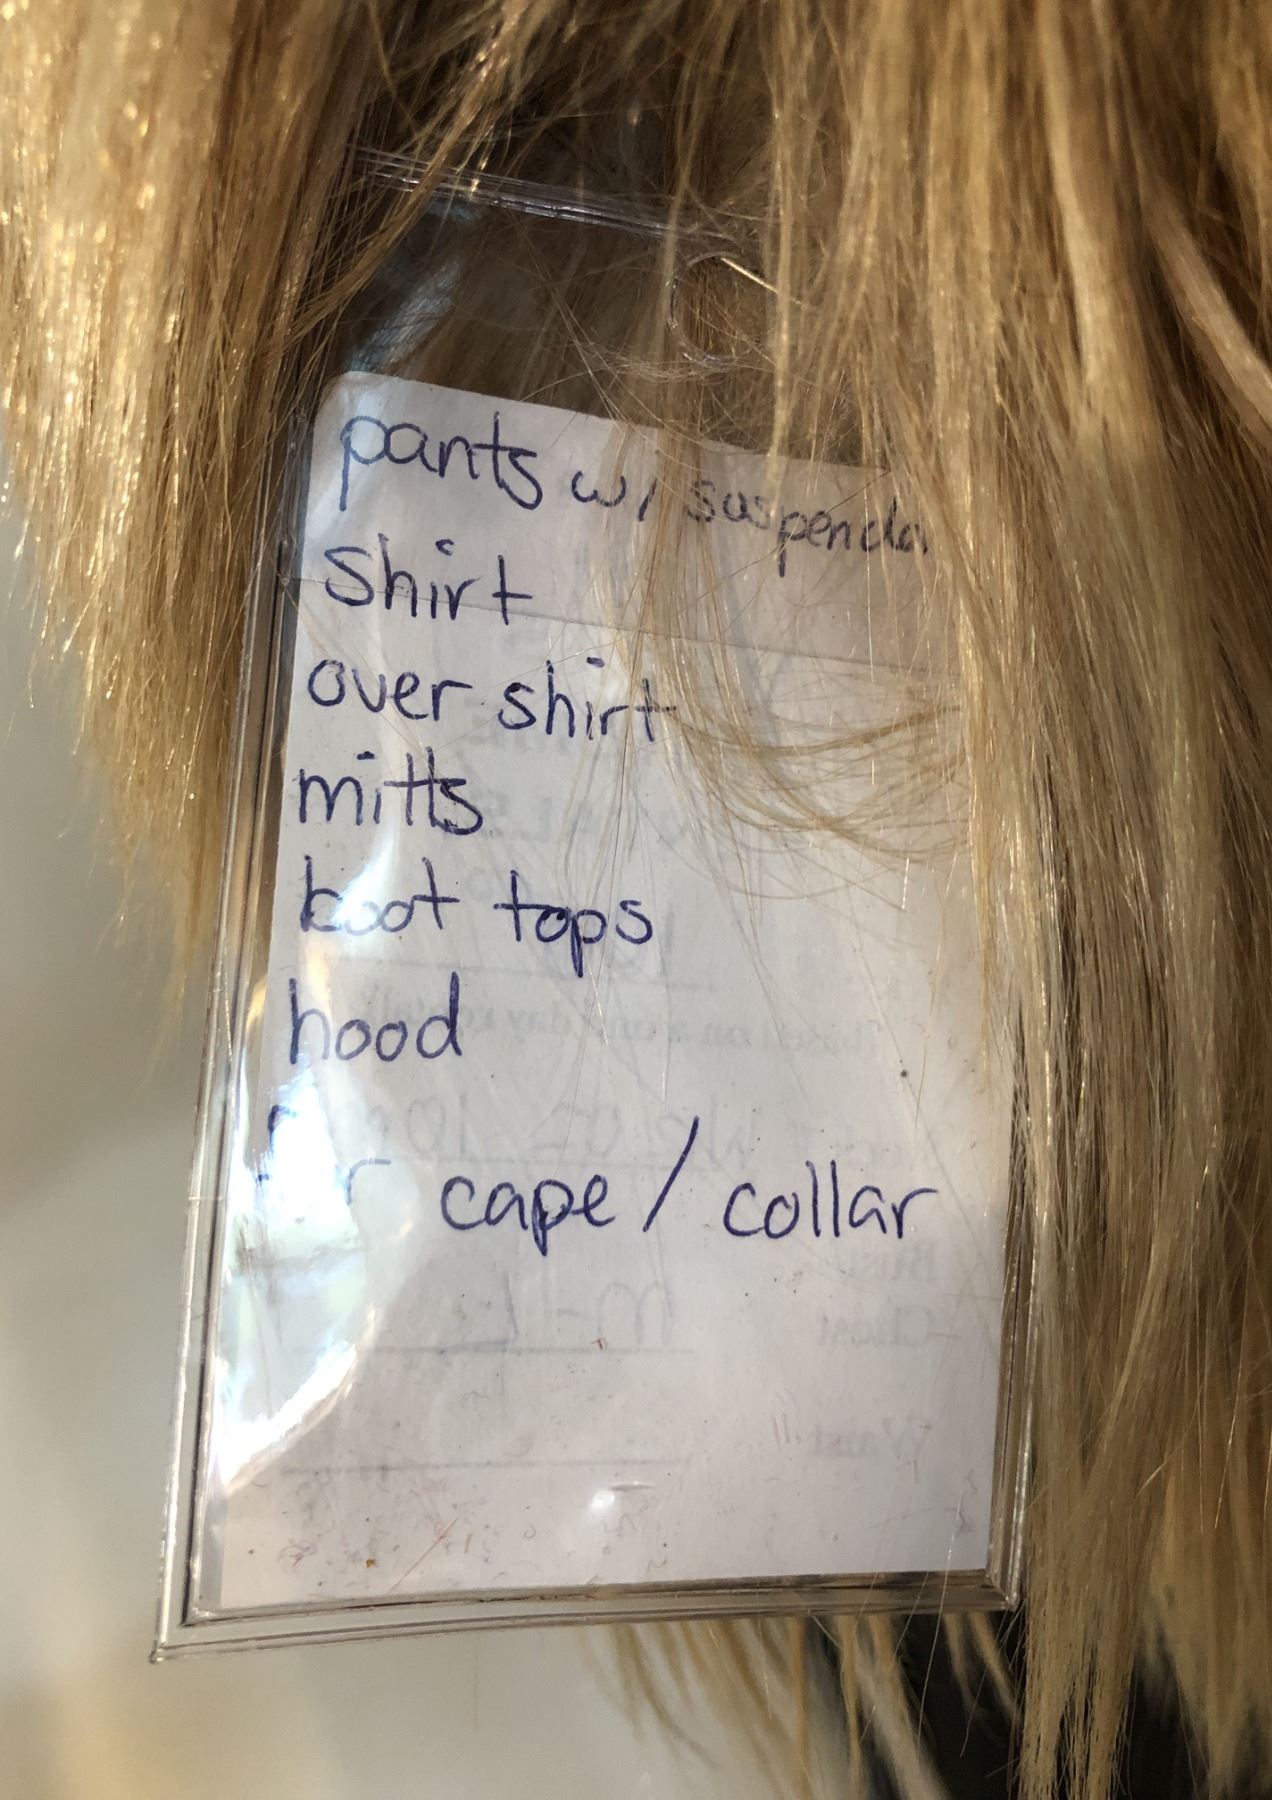 pants w/
shirt
over shirt
mitts
boot tops
hood
cape / collar